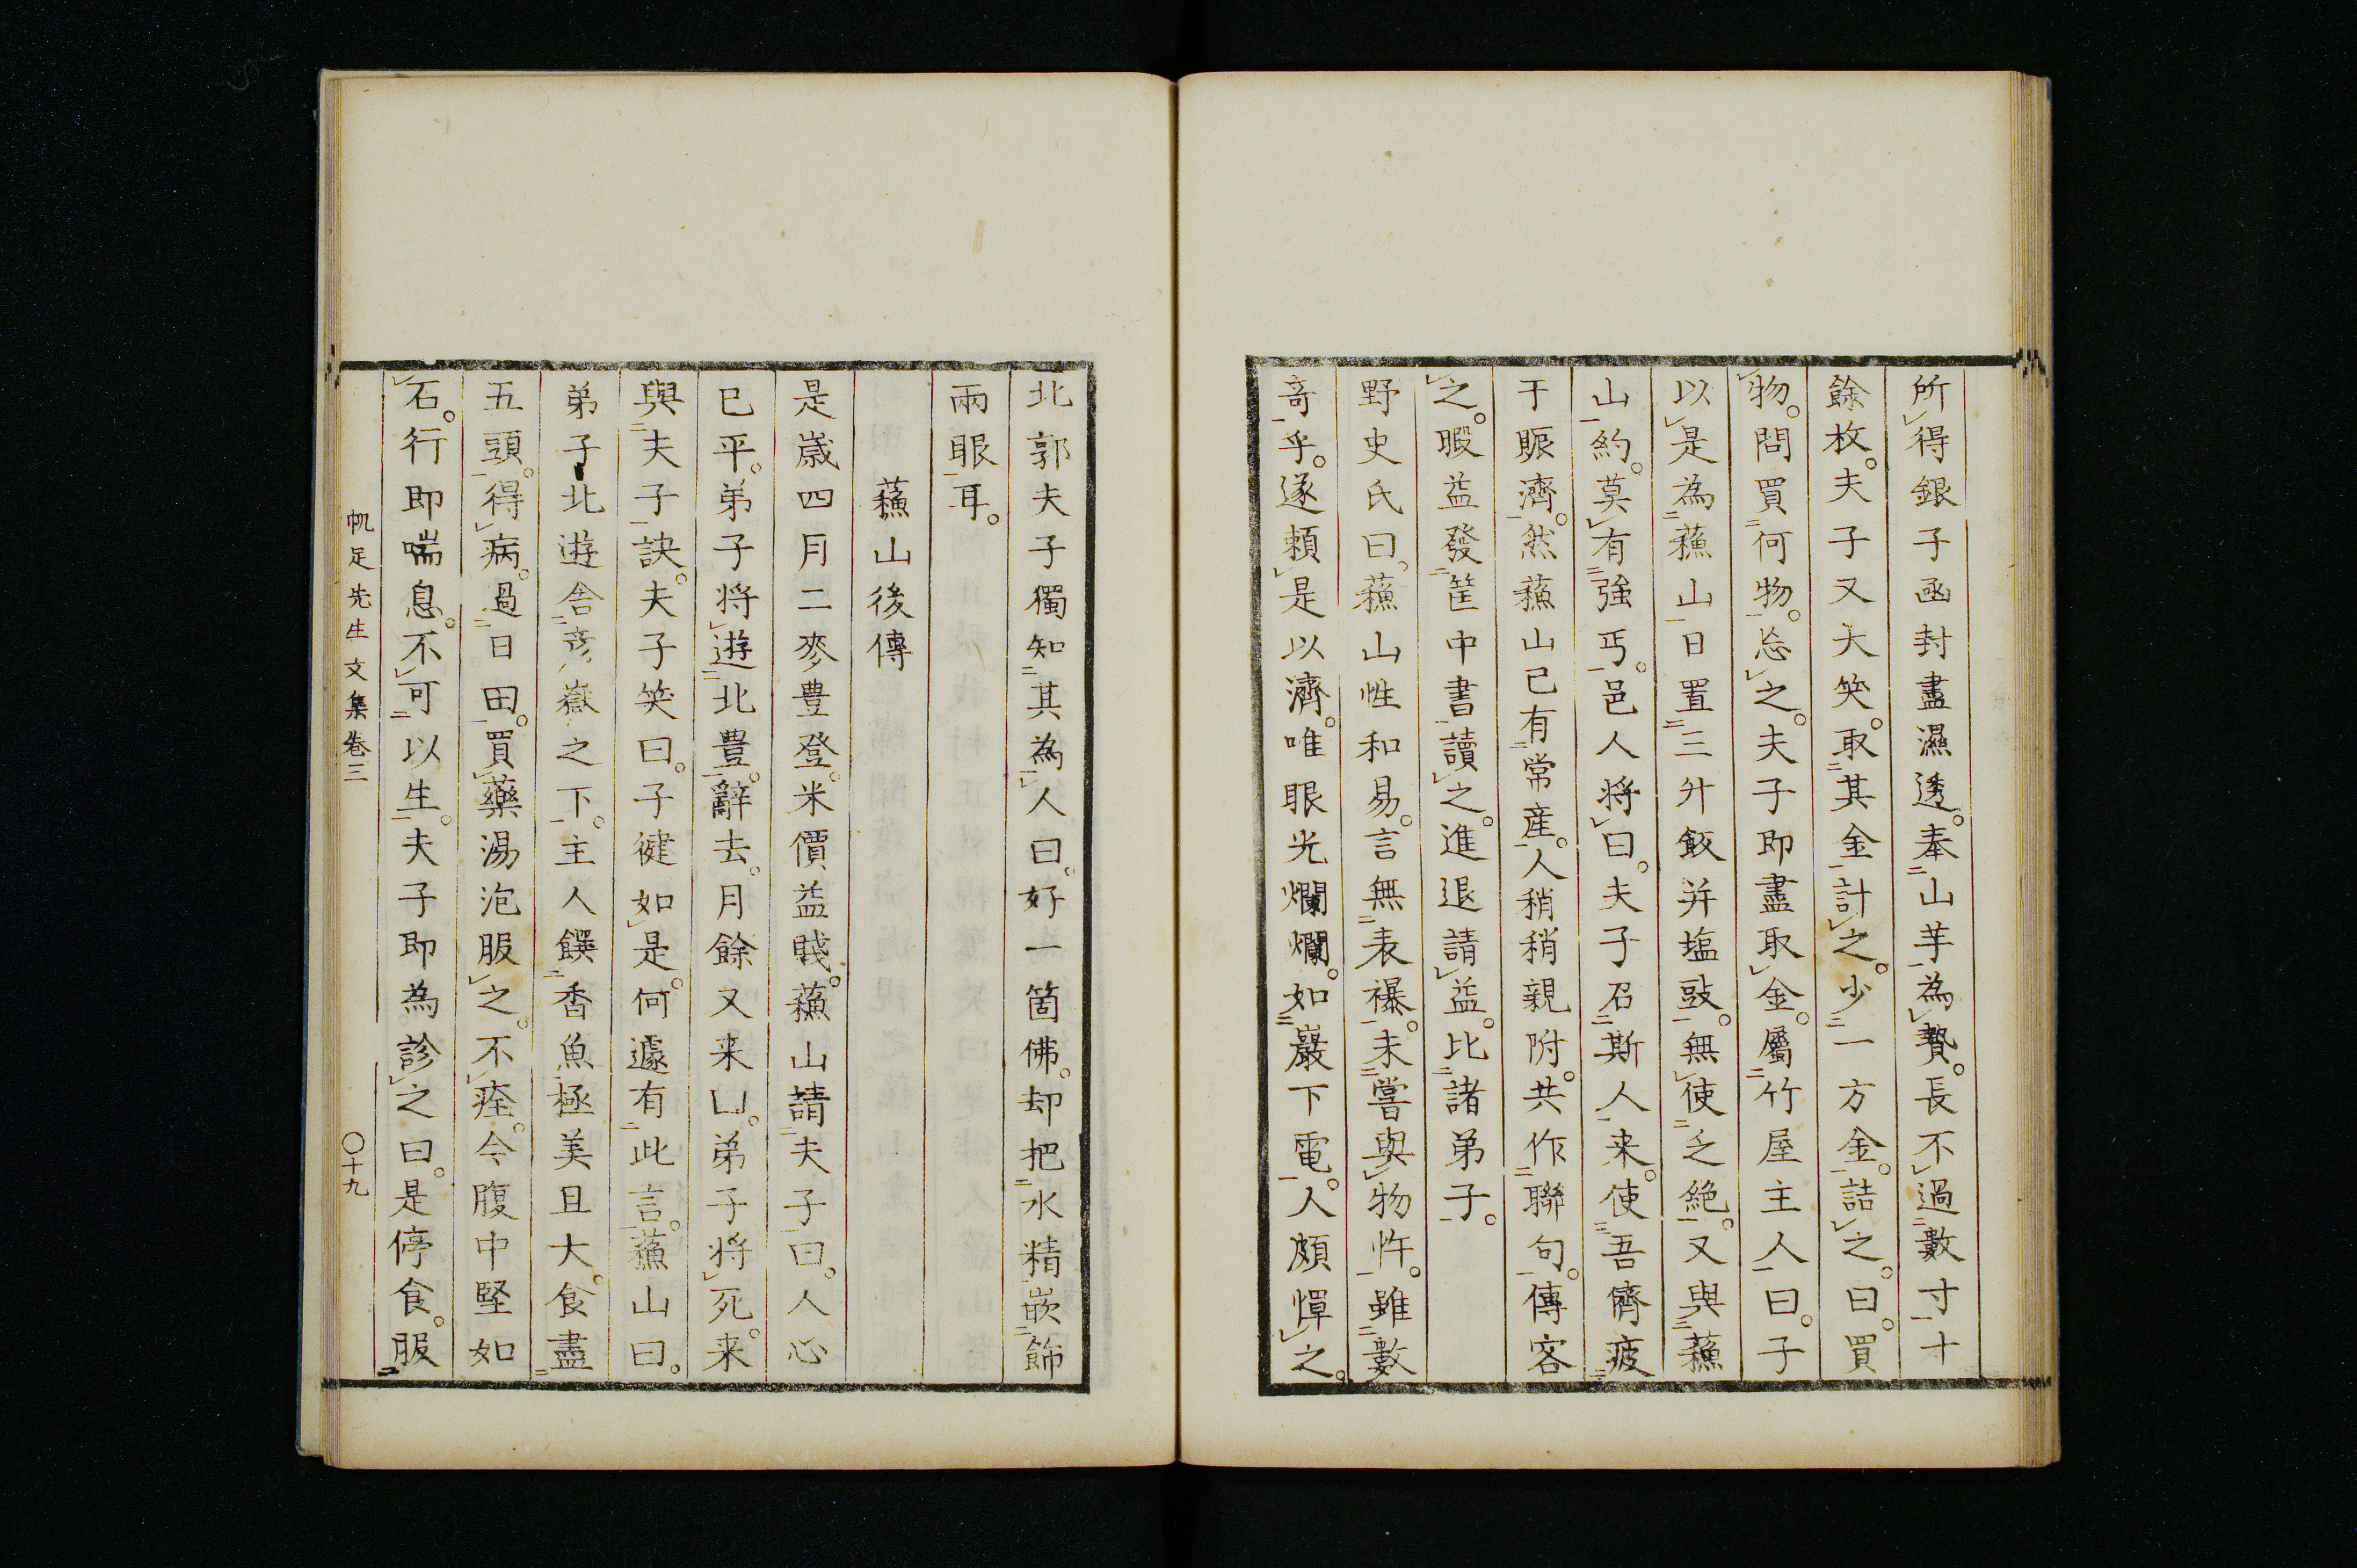 所得銀子函封盡濕透。奉山芋為贄。長不過數寸十
餘枚。夫子又大笑。取其金計之。少一方金。詰之。曰。買
物。問買何物。忘之。夫子即盡取金。屬竹屋主人曰。子
以是為蘓山日置三升飯并塩豉。無使乏絶。又與蘓
山約。莫有強丐。邑人将曰。夫子召斯人来。使吾儕疲
于賑濟。然蘓山已有常産。人稍稍親附。共作聯句。傳客
之。暇益發筐中書讀之。進退請益。比諸弟子。
野史氏曰。蘓山性和易。言無表襮。未嘗與物忤。雖數
奇乎。遂頼是以濟。唯眼光爛爛。如巖下電。人頗憚之。
北郭夫子獨知其為人曰。好一箇佛。却把水精嵌飾
兩眼耳。
蘓山後傳
是歳四月二麥豊登。米價益賤。蘓山請夫子曰。人心
已平。弟子将遊北豊。辭去。月餘又来𠃊。弟子将死。来
與夫子訣。夫子笑曰。子健如是。何遽有此言。蘓山曰。
弟子北遊舎彦嶽之下。主人饌香魚極美且大。食盡
五頭。得病。過日田。買藥湯泡服之。不痊。今腹中堅如
石。行即喘息。不可以生。夫子即為診之曰。是停食。服
帆足先生文集巻三
〇十九